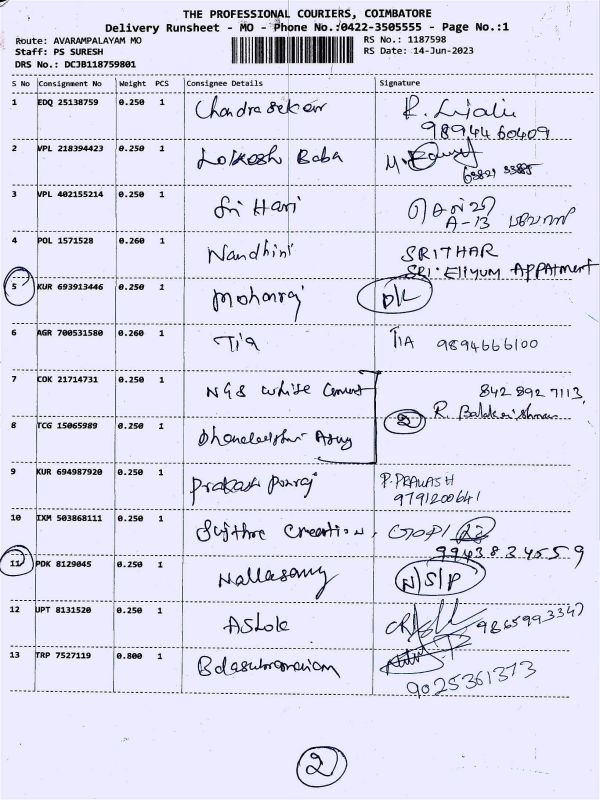 THE PROFESSIONAL COURIERS, COIMBATORE
Delivery Runsheet - MO - Phone No.:0422-3505555 - Page No.:1
Route: AVARAMPALAYAM MO
RS No.: 1187598
Staff: PS SURESH
RS Date: 14-Jun-2023
DRS No.: DCJB118759801
S No Consignment No Weight PCS Consignee Details Signature
1 EDQ 25138759 0.250 1 Chandrasekar R.
9894460409
2 VPL 218394423 0.250 1 Lokesh Baba
3 VPL 402155214 0.250 1 Sri Hari
A-13
4 POL 1571528 0.260 1 Nandhini SRITHAR
SRI ELIYUM APPATMENT
5 KUR 693913446 0.250 1 Mohanraj D/L
6 AGR 700531580 0.260 1 Tia TIA 9894666100
7 COK 21714731 0.250 1 NGS White Cement 842 892 7113
2 R. Balakrishnan
8 TCG 15065989 0.250 1
9 KUR 694987920 0.250 1 Prakash Ponraj P. PRAKASH
9791200641
10 IXM 503868111 0.250 1 Sujithra Creation. GOPI
9943834559
11 PDK 8129045 0.250 1 Nallasamy N/S/P
12 UPT 8131520 0.250 1 Ashok 9865993347
13 TRP 7527119 0.800 1 Balasubramaniam
9025361373
2